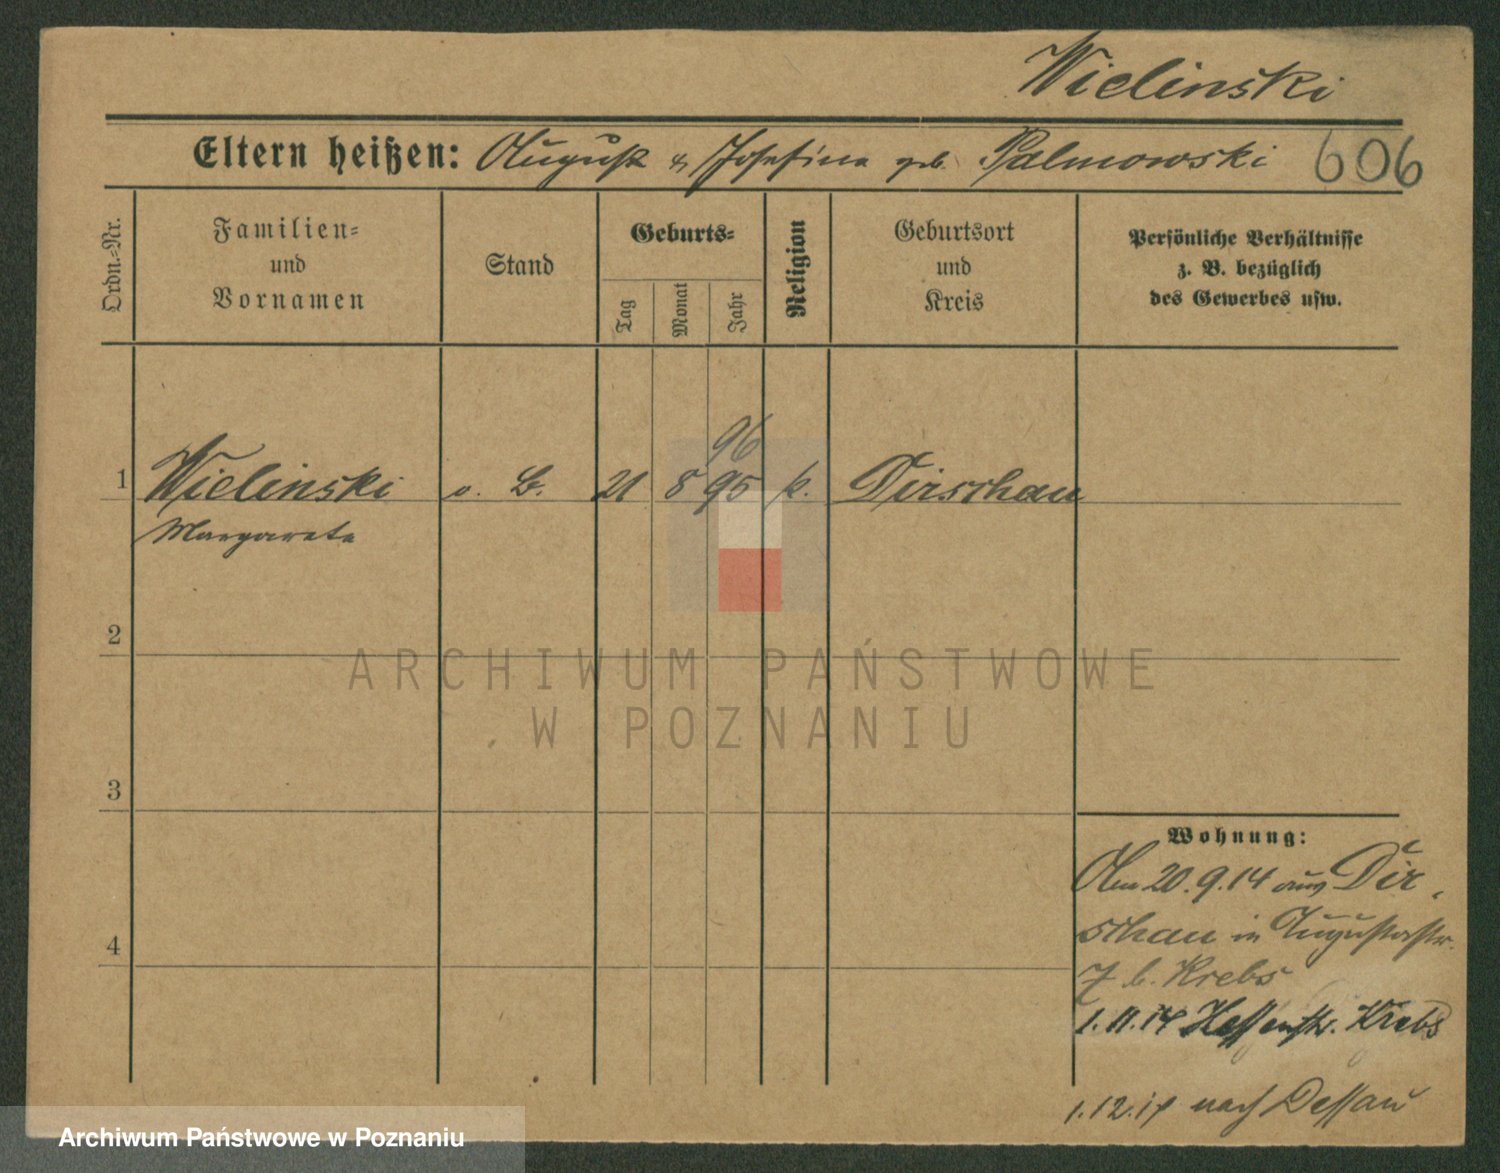 Wielinski
Eltern heißen: August & Josefina geb. Palmowski 606
Ordn.-Nr.
Familien-
und
Vornamen
Stand
Geburts-
Tag
Monat
Jahr
Religion
Geburtsort
und
Kreis
Persönliche Verhältnisse
z. B. bezüglich
des Gewerbes usw.
96
1 Wielinski o. B. 21 8 95 k. Dirschau
Margarete
2
ARCHIWUM PAŃSTWOWE
W POZNANIU
3
Wohnung:
Am 20.9.14 aus Dir-
schau in Augustastr.
7 b. Krebs
4
1.11.14 Hessenstr. Krebs
1.12.14 nach Dessau
Archiwum Państwowe w Poznaniu